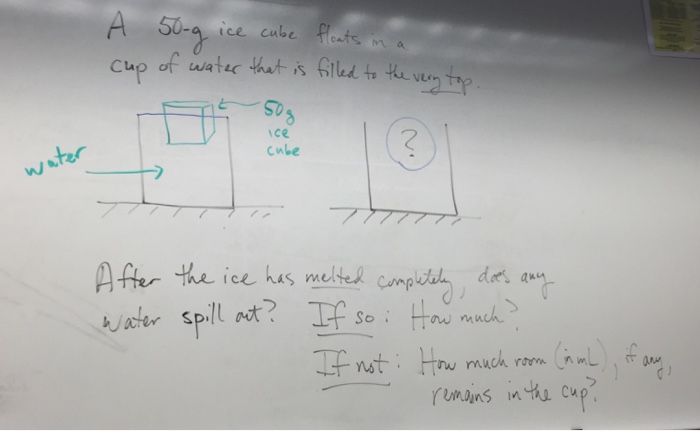 A 50-g ice cube floats in a
cup of water that is filled to the very top.
50g
ice
cube
water
?
After the ice has melted completely, does any
water spill out? If so: How much?
If not: How much room (in mL), if any,
remains in the cup?